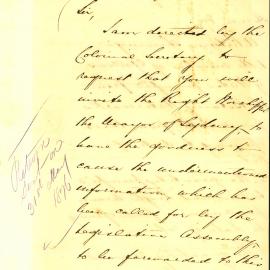 Sir,
I am directed by the
Colonial Secretary to
request that you will
invite the Right Worshipful
the Mayor of Sydney, to
have the goodness to
cause the undermentioned
information, which has
been called for by the
Legislative Assembly,
to be forwarded to this
Return
31st May
1870